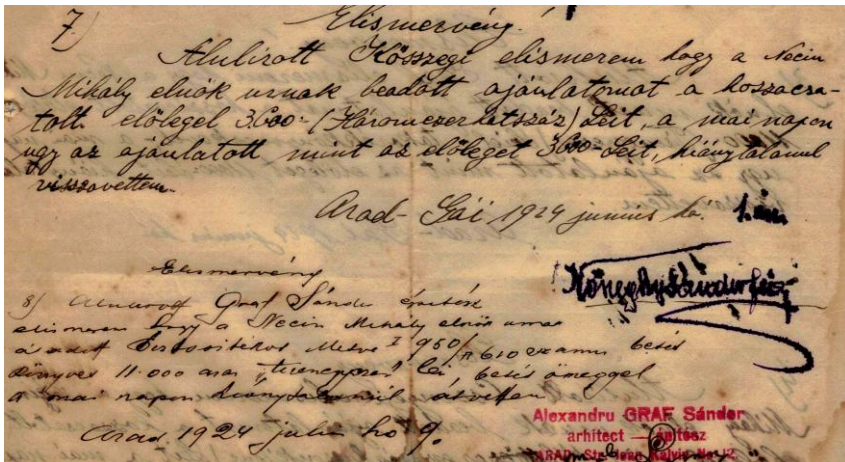 7)
Elismervény.
Alulírott Kősszegi elismerem hogy a Necin
Mihály elnök urnak beadott ajánlatomat a hozzácsa-
tolt előlegel 3.600 - (Háromezerhatszáz) Leit, a mai napon
ugy az ajánlatott mint az előleget 3600 - Leit, hiánytalanul
visszavettem.
Arad - Gáj 1924 junius hó. 1.én
Elismervény
8) Alulírott Graf Sándor építész
elismerem hogy a Necin Mihály elnök urnak
átadott 950 610 számu betés
könyvet 11.000 azaz lei, betés öszeggel
a mai napon hiánytalanul átvettem
Arad. 1924 julius hó 9.
Alexandru GRAF Sándor
arhitect — építész
ARAD, Str.